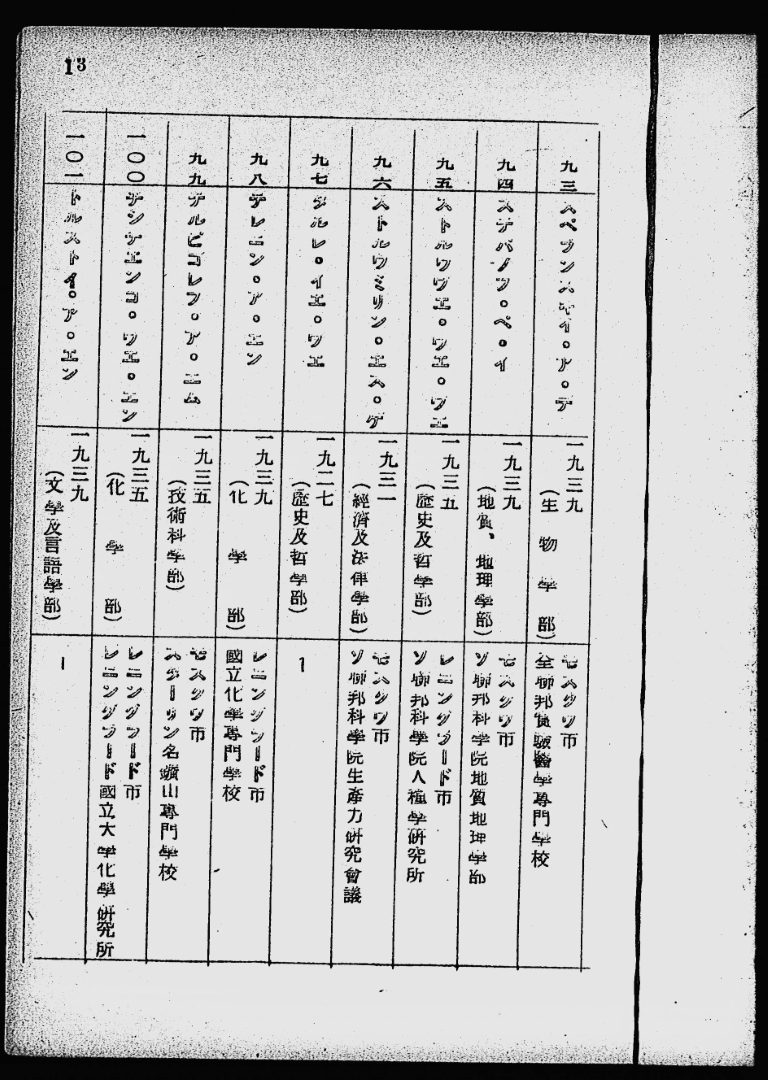 13
九三
スペランスキイ。ア。デ
一九三九
(生物學部)
モスクワ市
全聯邦實驗醫學專門學校
九四
ステパノフ。ペ。イ
一九三九
(地質、地理學部)
モスクワ市
ソ聯邦科學院地質地理學部
九五
ストルウヴエ。ウエ。ウエ
一九三五
(歷史及哲學部)
レニングラード市
ソ聯邦科學院人種學研究所
九六
ストルウミリン。エス。ゲ
一九三一
(經濟及法律學部)
モスクワ市
ソ聯邦科學院生產力研究會議
九七
タルレ。イエ。ウエ
一九二七
(歷史及哲學部)
ー
九八
テレニン。ア。エン
一九三九
(化學部)
レニングラード市
國立化學專門學校
九九
テルピゴレフ。ア。エム
一九三五
(技術科學部)
モスクワ市
スターリン名鑛山專門學校
一〇〇
チシチエンコ。ウエ。エン
一九三五
(化學部)
レニングラード市
レニングラード國立大學化學研究所
一〇一
トルストイ。ア。エン
一九三九
(文學及言語學部)
ー